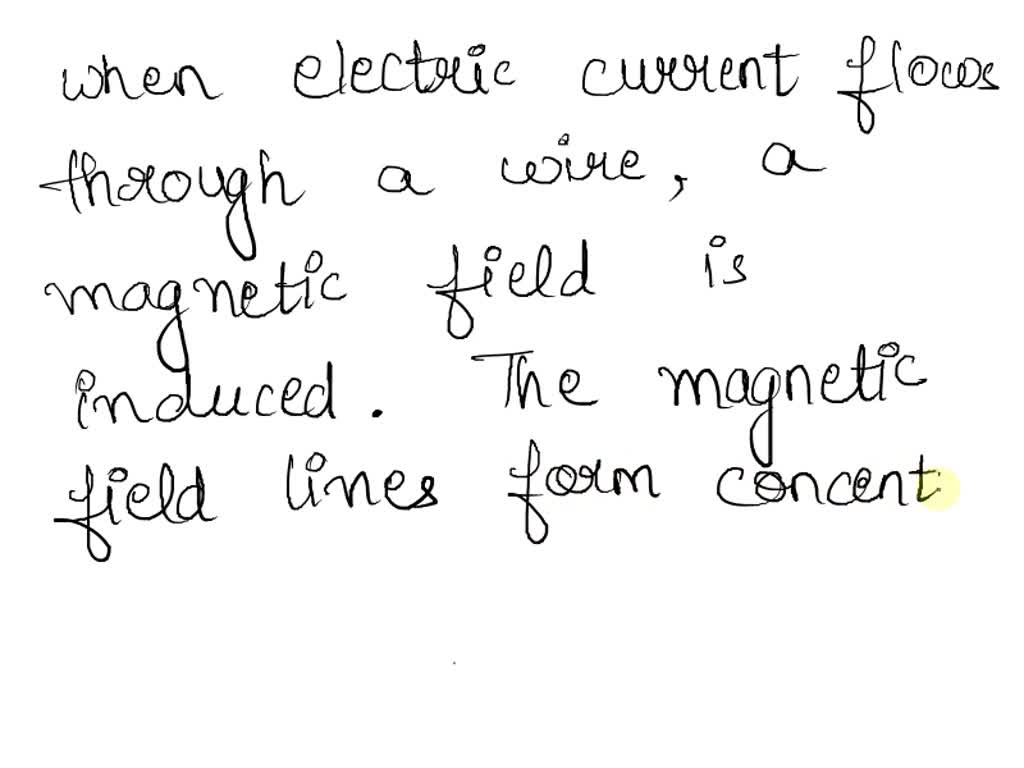 when electric current flows
through a wire, a
magnetic field is
induced. The magnetic
field lines form concent